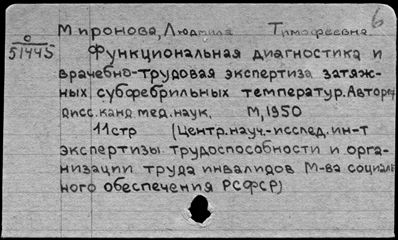 6
Миронова, Людмила Тимофеевна
0
51445
Функциональная диагностика и
врачебно-трудовая экспертиза затяж-
ных субфебрильных температур. Автореф
дисс. канд. мед. наук. М, 1950
11стр (Центр. науч.-исслед. ин-т
экспертизы трудоспособности и орга-
низации труда инвалидов М-ва социаль
ного обеспечения РСФСР)